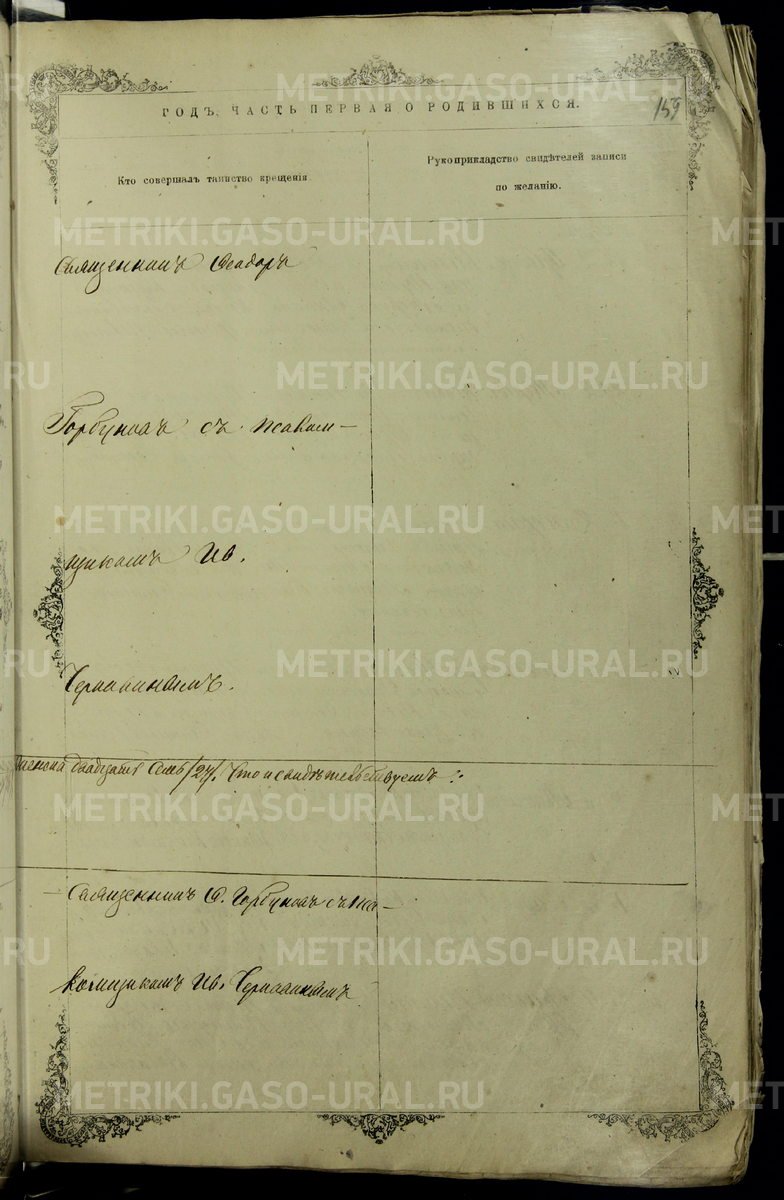 ГОДЪ, ЧАСТЬ ПЕРВАЯ О РОДИВШИХСЯ.
159
Кто совершалъ таинство крещенія
Рукоприкладство свидѣтелей записи
по желанію.
Священникъ Ѳеодоръ
Горбуновъ съ псалом-
щикомъ Ив.
двадцать семь /27/. Что и свидѣтельствуемъ:
Священникъ Ѳ. Горбуновъ съ пса-
ломщикомъ Ив.
METRIKI.GASO-URAL.RU